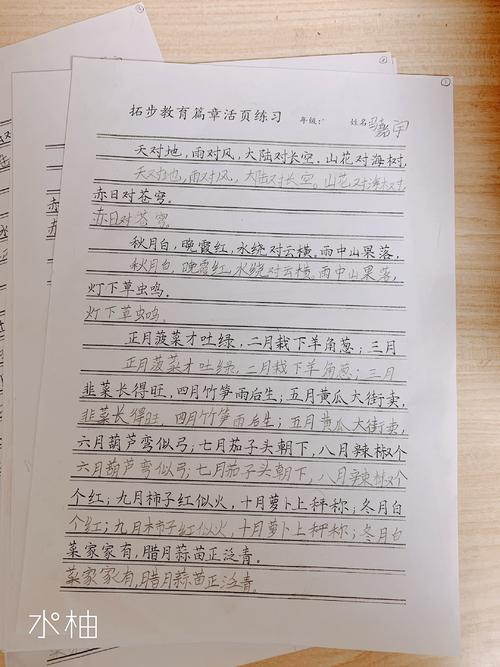 拓步教育篇章活页练习 年级: 姓名
天对地，雨对风。大陆对长空。山花对海树，
天对地，雨对风，大陆对长空。山花对海树，
赤日对苍穹。
赤日对苍穹。
秋月白，晚霞红，水绕对云横。雨中山果落，
秋月白，晚霞红，水绕对云横。雨中山果落，
灯下草虫鸣。
灯下草虫鸣。
正月菠菜才吐绿，二月栽下羊角葱；三月
正月菠菜才吐绿，二月栽下羊角葱；三月
韭菜长得旺，四月竹笋雨后生；五月黄瓜大街卖，
韭菜长得旺，四月竹笋雨后生；五月黄瓜大街卖，
六月葫芦弯似弓；七月茄子头朝下，八月辣椒个
六月葫芦弯似弓；七月茄子头朝下，八月辣椒个
个红；九月柿子红似火，十月萝卜上秤称；冬月白
个红；九月柿子红似火，十月萝卜上秤称；冬月白
菜家家有，腊月蒜苗正泛青。
菜家家有，腊月蒜苗正泛青。
水柚